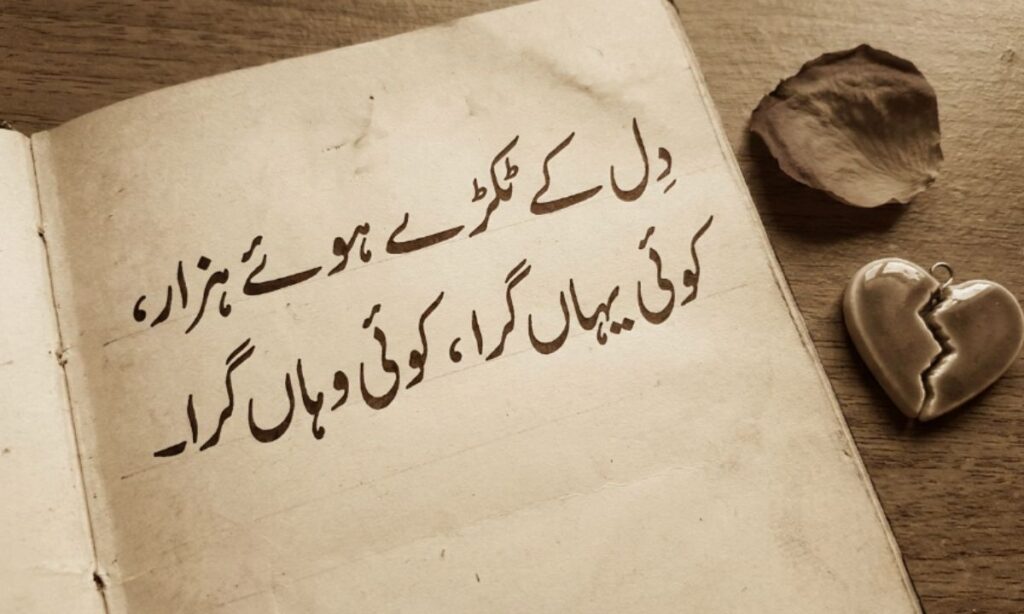 دِل کے ٹکڑے ہوئے ہزار،
کوئی یہاں گرا، کوئی وہاں گرا۔